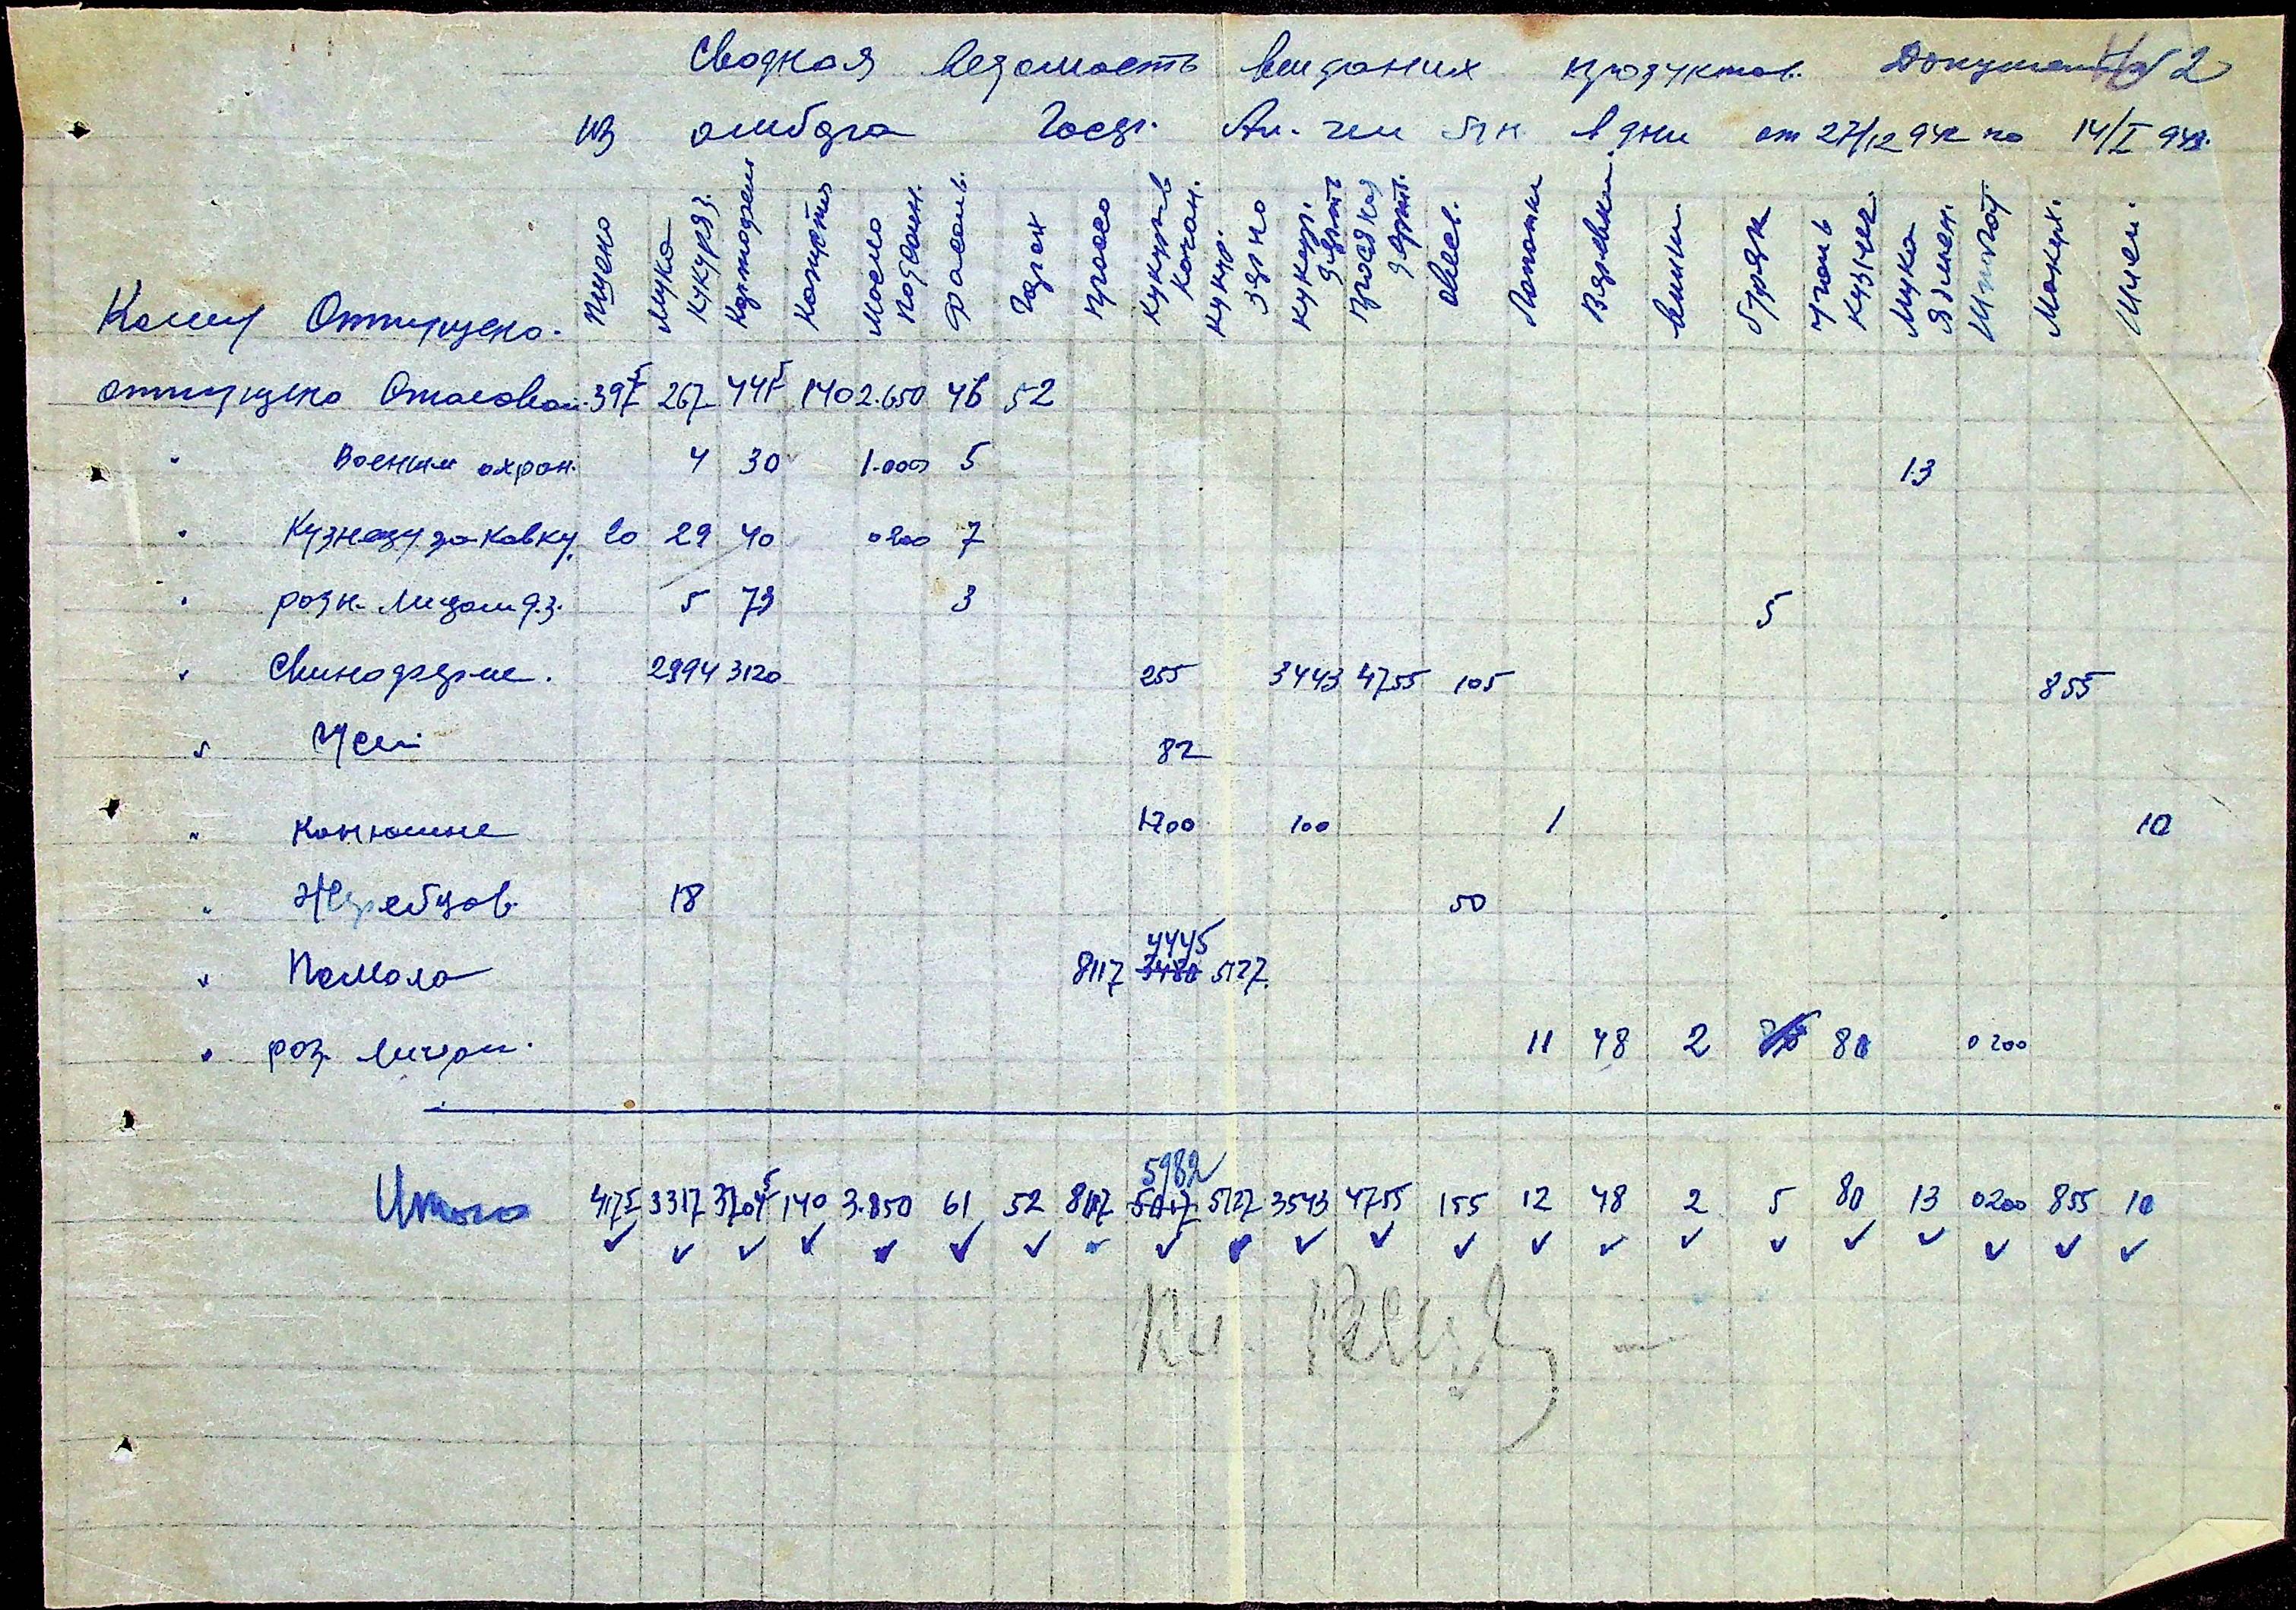 Сводная ведомость выданих продуктов. Документ № 2
из амбара Госдр. в дни от 27/12 942 по 14/I 943.
Кому Отпущено. Пшено Мука кукуряз. Картофеля Капуста Масло подсолн. Фасоль. Горох Просо Кукуруз в качан. Кукур. зярно Кукур. дерть Просяная дерть. Овес. Лопаты Вяревки. Вилки. Буряк Уголь кузнеч. Мука Ячмен. Шпогот Макух.
отпущено Столовой. 397,5 267 441,5 140 2.650 46 52
" Военим охран. 4 30 1.000 5 13
" Кузнецу за ковку. 20 29 40 0200 7
" розн. Лицам 5 73 3 5
" Свиноферме. 2994 3120 255 3443 4755 105 855
" 82
" Конюшне 1200 100 1 10
" Жеребцов. 18 50
" Помола 8117 4445 3480 5127.
" роз. Лицам. 11 48 2 80 0200
Итого 4175 3317 3704,5 140 3.850 61 52 8117 5982 5127 3543 4755 155 12 48 2 5 80 13 0200 855 10